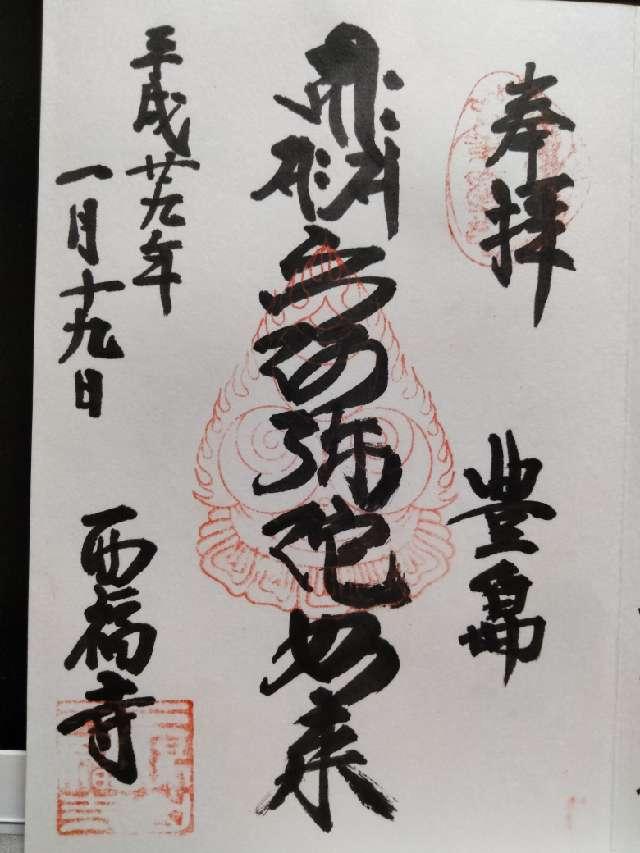 奉拝
豊島
六阿弥陀如来
平成廿九年
一月十九日
西福寺